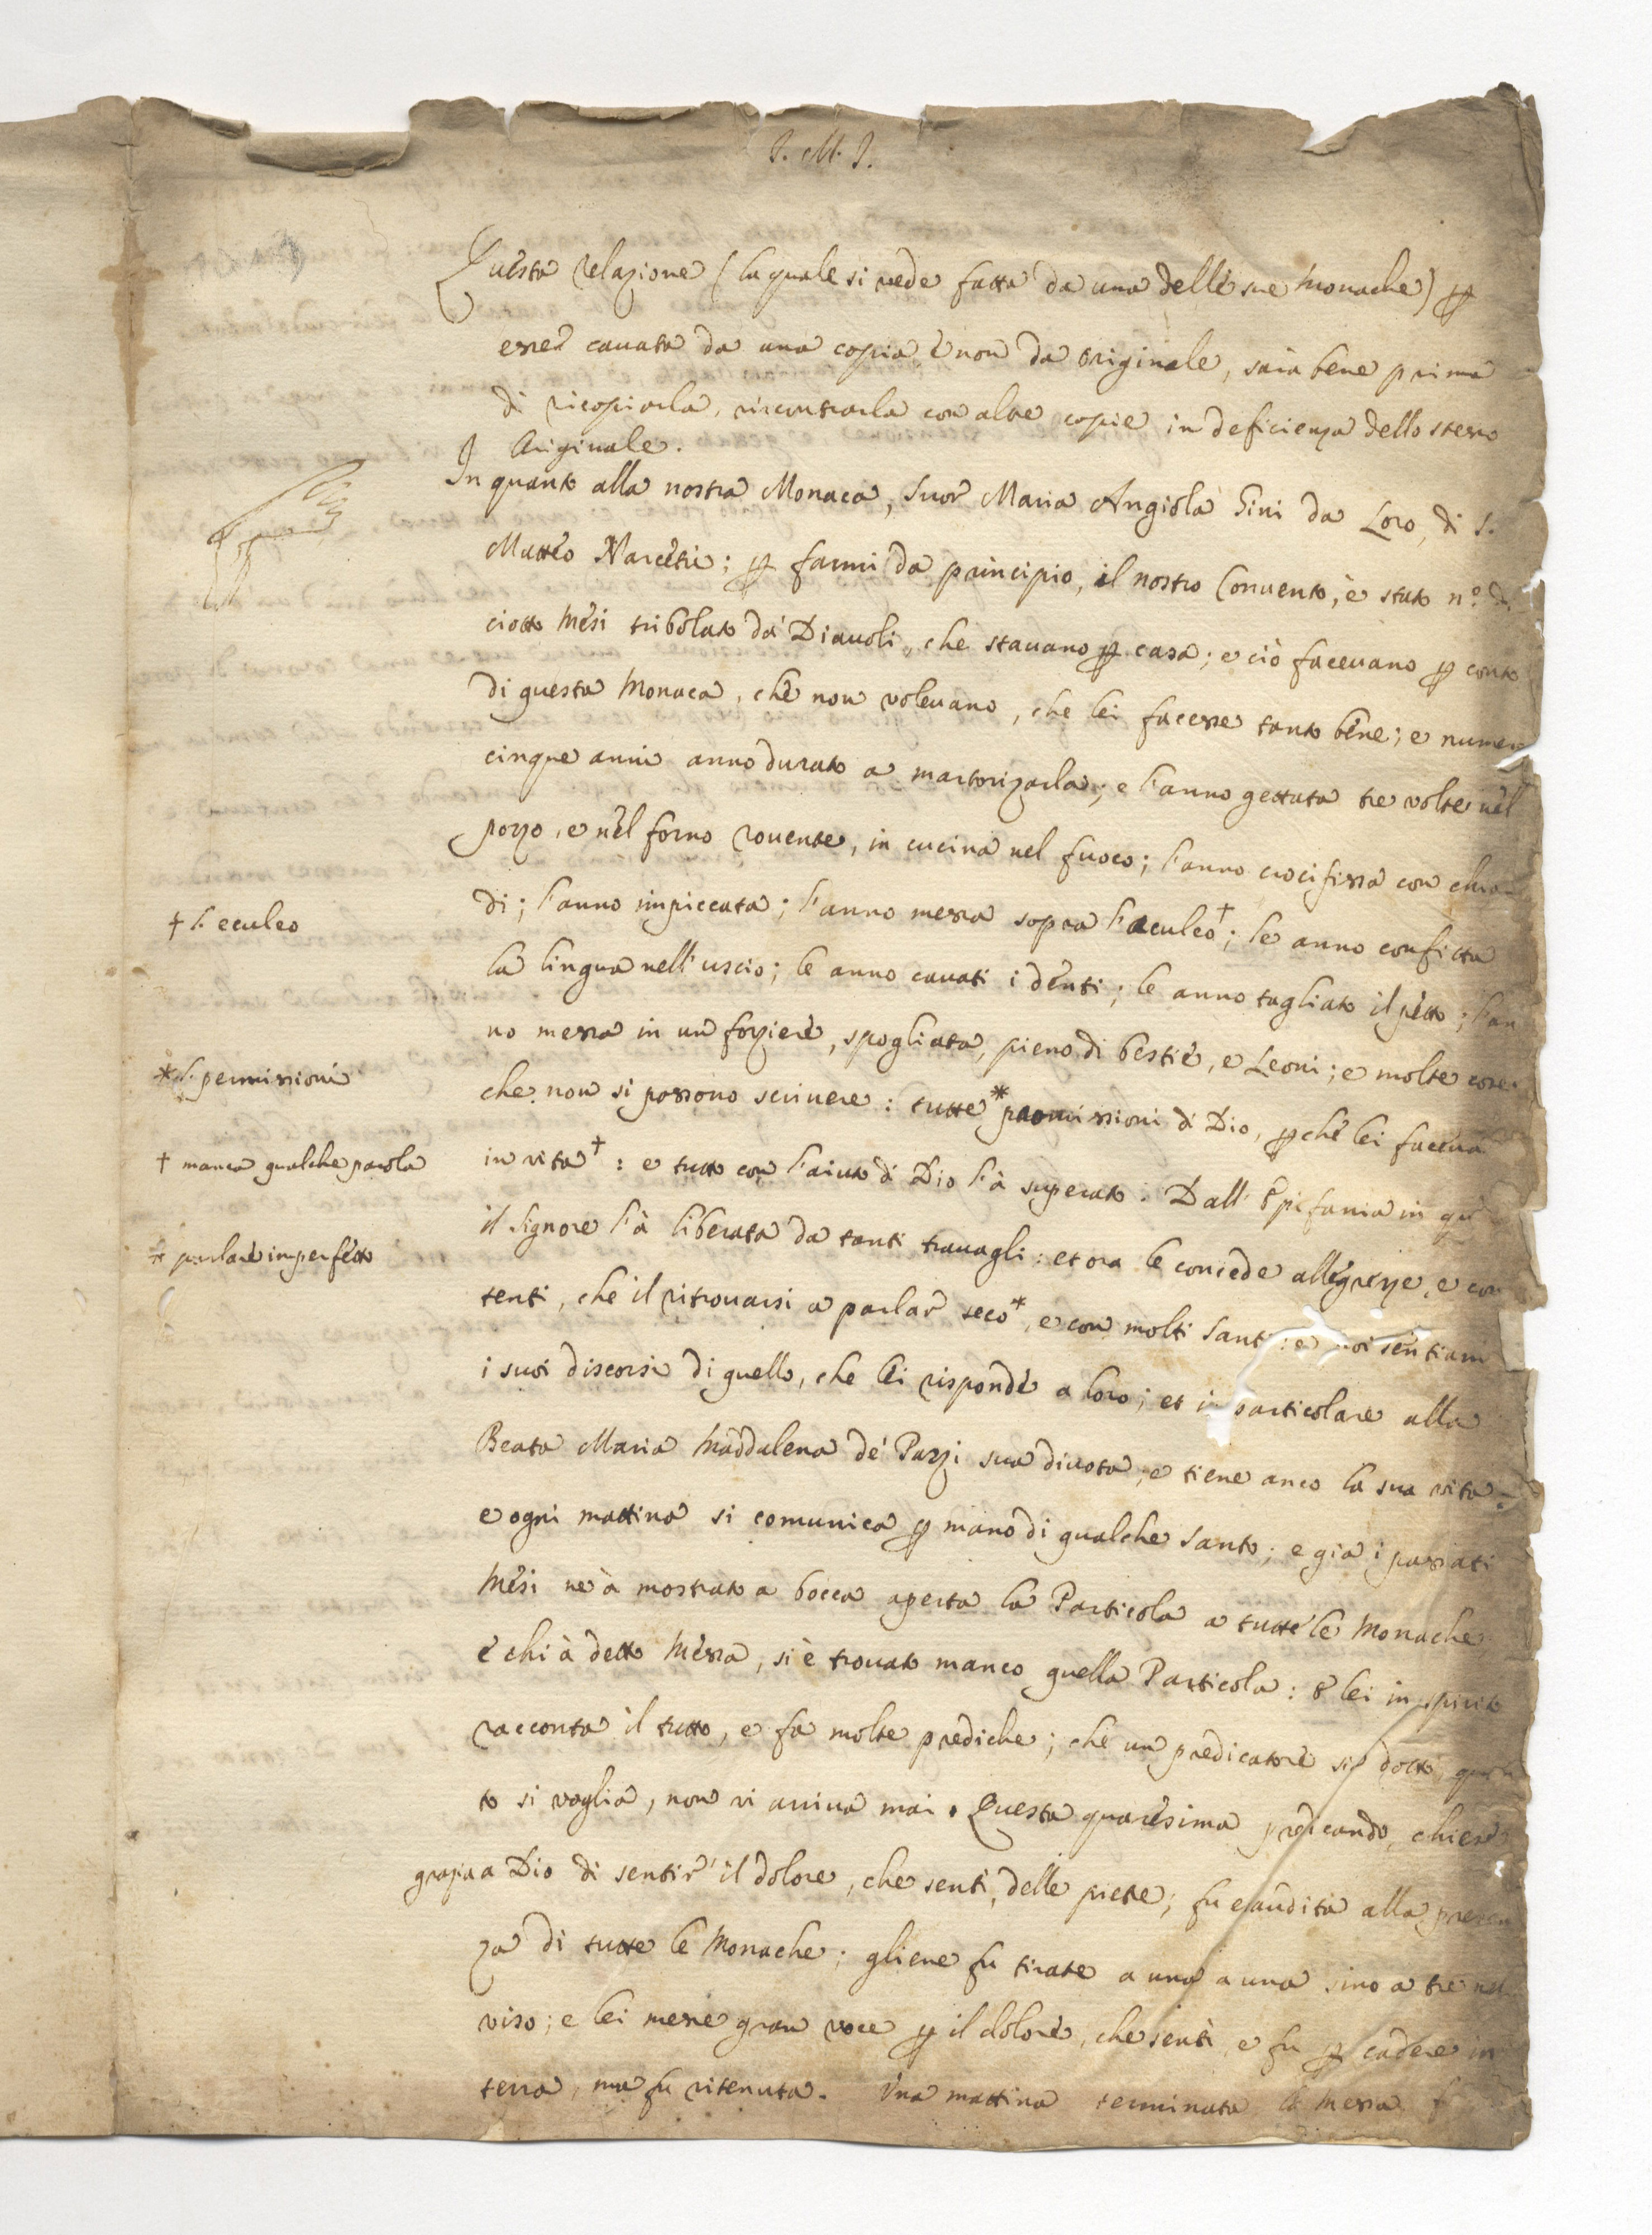 J. M. J.
Questa relazione (la quale si vede fatta da una delle sue Monache) p
esser cauata da una copia, e non da originale, sarà bene prima
di ricopiarla, riscontrarla con altre copie in deficienza dello stesso
Originale.
In quanto alla nostra Monaca, Suor Maria Angiola Gini da Loro, di S.
Matteo Narcetri; p farmi da principio, il nostro Conuento, è stato n.º di
ciotto Mesi tribolato da' Diauoli, che stauano p casa; e ciò faceuano p conto
di questa Monaca, che non voleuano, che lei facesse tanto bene; e numero
cinque anni anno durato a martorizarla; e l'anno gettata tre volte nel
pozzo, e nel forno rouente, in cucina nel fuoco; l'anno crocifissa con chio-
di; l'anno impiccata; l'anno messa sopra l'aculeo†; le anno confitta
† l. eculeo
la lingua nell'uscio; le anno cauati i denti; le anno tagliato il petto; l'an
no messa in un forziere, spogliata, pieno di bestie, e Leoni; e molte cose
* l. permissioni
che non si possono scriuere: tutte *promissioni di Dio, pchè lei faceua
† manca qualche parola
in vita†: e tutto con l'aiuto di Dio l'à superato. Dall'Epifania in quà
* parlare imperfetto
il Signore l'à liberata da tanti trauagli: et ora le concede allegrezze, e con
tenti, che il ritrouarsi a parlar seco*, e con molti Santi: e noi sentiam
i suoi discorsi di quello, che lei risponde a loro; et in particolare alla
Beata Maria Maddalena de' Pazzi sua diuota; e tiene anco la sua vita:
e ogni mattina si comunica p mano di qualche Santo; e già i passati
Mesi ne à mostrato a bocca aperta la Particola a tutte le Monache
e chi à detto Messa, si è trouato manco quella Particola: E lei in spirito
racconta il tutto, e fa molte prediche; che un predicatore sia dotto quan
to si voglia, non vi arriua mai. Questa quaresima predicando, chiese
grazia a Dio di sentir' il dolore, che sentì, delle pietre; fu esaudita alla presen
za di tutte le Monache; gliene fu tirate a una a una sino a tre nel
viso; e lei messe gran voce p il dolore, che sentì, e fu p cadere in
terra, ma fu ritenuta. Una mattina terminata la Messa